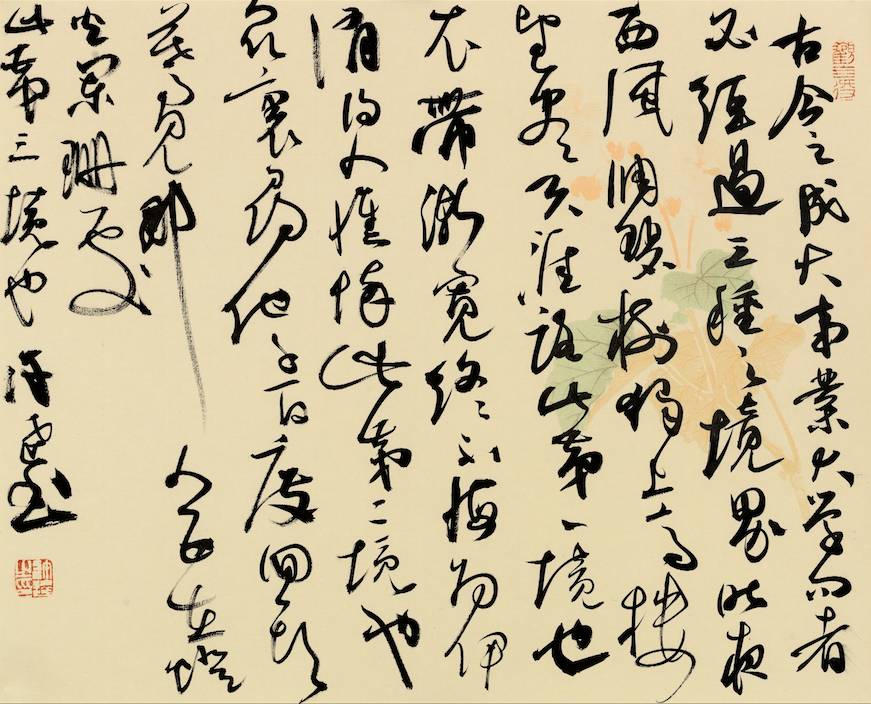 古今之成大事業大學问者
必經過三種之境界昨夜
西風凋碧樹獨上高樓
望盡天涯路此第一境也
衣帶漸寬終不悔为伊
消得人憔悴此第二境也
眾裏尋他千百度回頭
蓦見那人正在燈
火闌珊處
此第三境也 书